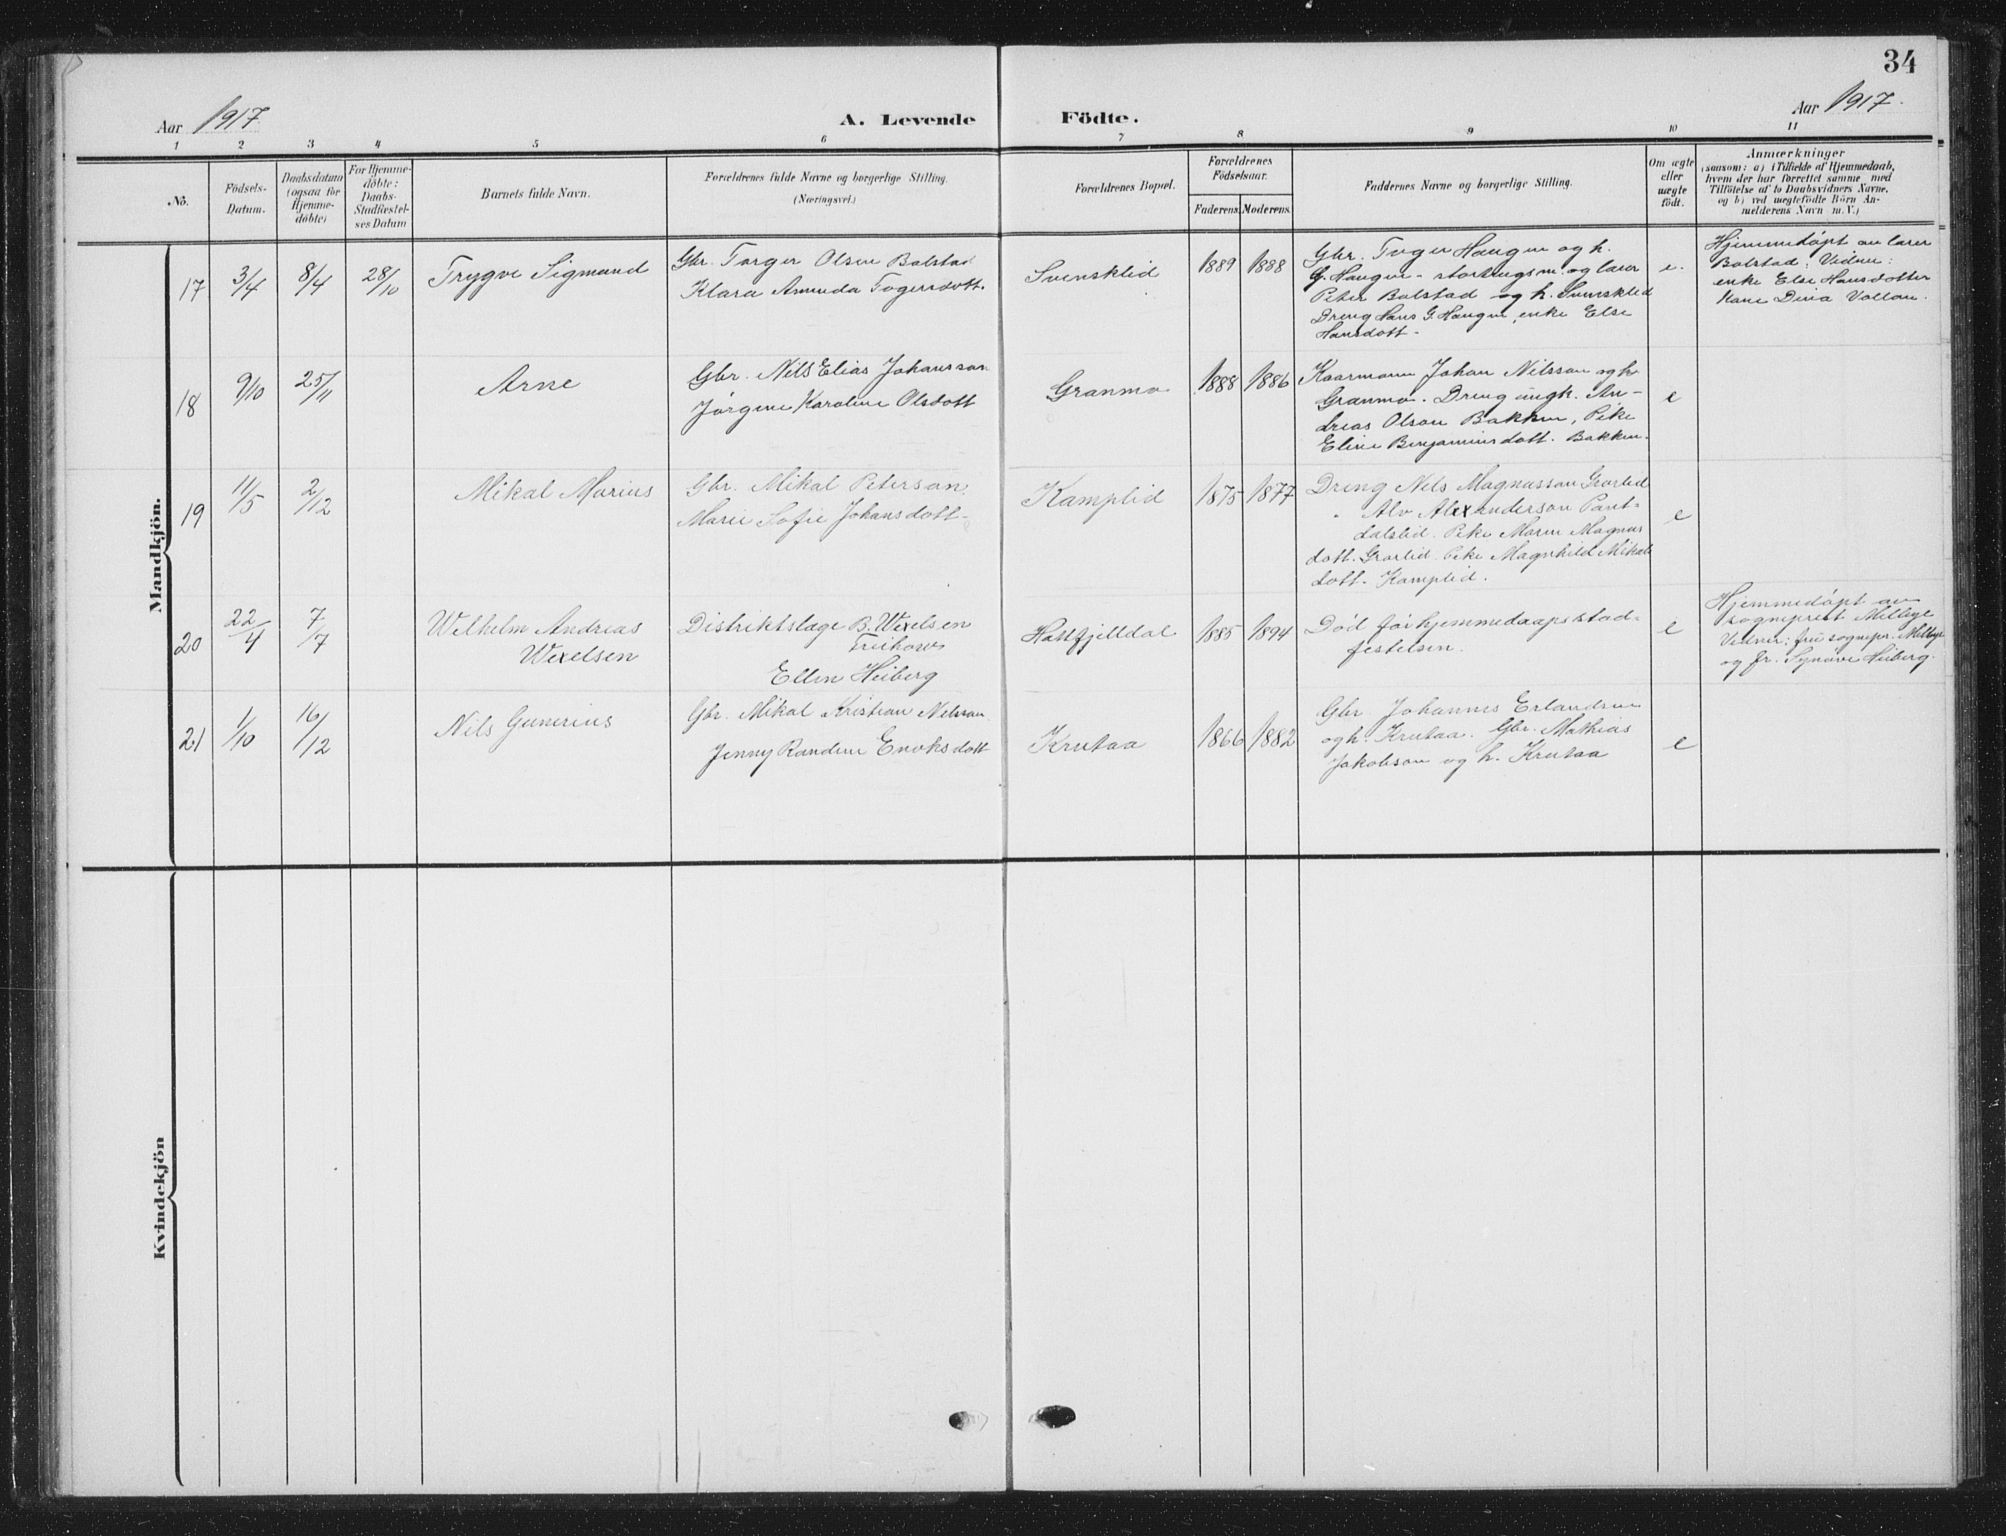 34
Aar 1917
A. Levende Födte.
Aar 1917.
1 2 3 4 5 6 7 8 9 10 11
No.
Födsels-
Datum.
Daabsdatum
(ogsaa for
Hjemme-
döbte)
For Hjemme-
döbte:
Daabs-
Stadfæstel-
ses Datum
Barnets fulde Navn.
Forældrenes fulde Navne og borgerlige Stilling.
(Næringsvei.)
Forældrenes Bopæl.
Forældrenes
Födselsaar.
Faderens.
Moderens.
Faddernes Navne og borgerlige Stilling.
Om ægte
eller
uægte
födt.
Anmærkninger
(saasom: a) i Tilfælde af Hjemmedaab,
hvem der har forrettet samme med
Tilföielse af to Daabsvidners Navne,
og b) ved uægtefödte Börn An-
melderens Navn m. V.)
Mandkjön.
17
3/4
8/4
28/10
Trygve Sigmund
Gbr. Torger Olsen Bolstad
Klara Amunda Togersdott.
Svensklid
1889
1888
Gbr. Toger Haugen og h.
G. Haugen - stortingsm. og lærer
Peter Bolstad og h. Svensklid
Dreng Hans G. Haugen, enke Else
Hansdott-
e.
Hjemmedøpt av lærer
Bolstad: Vidner:
enke Else Hansdotter
Kone Dina Vollan.
18
9/10
25/11
Arne
Gbr. Nils Elias Johansson
Jørgine Karoline Olsdott
Granmo
1888
1886
Kaarmann Johan Nilsson og h.
Granmo. Dreng ungk. An-
dreas Olson Bakken, Pike
Eline Benjaminsdott. Bakken.
e
19
11/5
2/12
Mikal Marius
Gbr. Mikal Peterson
Marie Sofie Johansdott-
Kamplid
1875
1877
Dreng Nils Magnusson Grørlid
" Alv Alexanderson Pant-
dalslid. Pike Maren Magnus
dott. Grørlid. Pike Magnhild Mikals
dott. Kamplid.
e
20
22/4
7/7
Welhelm Andreas
Wexelsen
Distriktslæge B. Wexelsen
Ellen Heiberg
Hatfjelldal
1885
1894
Død før hjemmedaapsstad-
festelsen.
e
Hjemmedøpt av
sogneprest Melbye
Vidner: fru sognepr. Melbye
og fr. Synøve Heiberg.
21
1/10
16/12
Nils Gunerius
Gbr. Mikal Kristian Nilsson
Jenny Randine Enoksdott
Krutaa
1866
1882
Gbr Johannes Erlandsen
og h. Krutaa. Gbr. Mathias
Jakobson og h. Krutaa
e
Kvindekjön